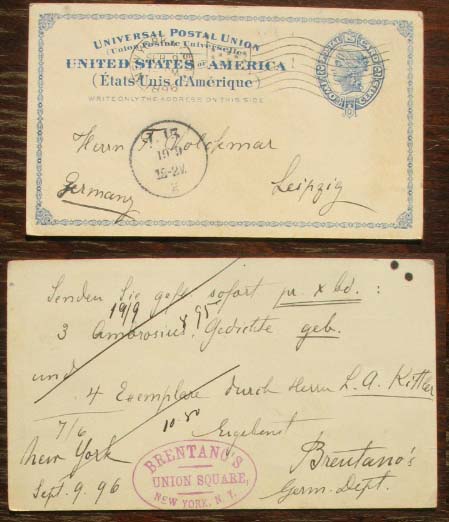 UNIVERSAL POSTAL UNION
(Union Postale Universelle)
UNITED STATES OF AMERICA
(États-Unis d'Amérique)
WRITE ONLY THE ADDRESS ON THIS SIDE
TWO CENTS
Herrn F. Volckmar
Germany
Leipzig
19 9
Senden Sie gefl. sofort pr. x bd. :
19/9 95
3 Ambrosius, Gedichte geb.
und
4 Exemplare durch Herrn L. A. Kittler
7/6
Ergebenst
New York
Brentano's
Sept. 9. 96
Germ. Dept.
BRENTANO'S
UNION SQUARE,
NEW YORK, N. Y.